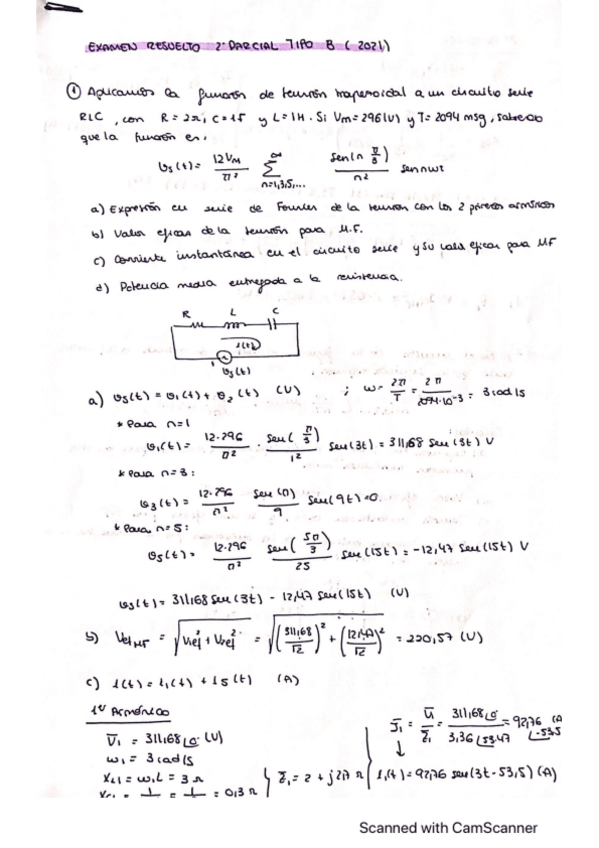 EXAMEN RESUELTO 2º PARCIAL TIPO B (2021)
① Aplicamos la función de tensión trapezoidal a un circuito serie
RLC, con R = 2Ω, C = 1F y L = 1H. Si Vm = 296(V) y T = 2094 msg, sabiendo
que la función es:
vs(t) = 12VM/π² ∑ n=1,3,5,... ∞ sen(n π/3)/n² sen nωt
a) Expresión en serie de Fourier de la tensión con los 2 primeros armónicos
b) Valor eficaz de la tensión para M.F.
c) Corriente instantánea en el circuito serie y su valor eficaz para MF
d) Potencia media entregada a la resistencia.
R L C
i(t)
vs(t)
a) vs(t) = v1(t) + v2(t) (V) ; ω = 2π/T = 2π/2094·10⁻³ = 3 rad/s
* Para n=1
v1(t) = 12·296/π² · sen(π/3)/1² sen(3t) = 311,68 sen(3t) V
* Para n=3:
v3(t) = 12·296/π² sen(π)/9 sen(9t) = 0.
* Para n=5:
v5(t) = 12·296/π² sen(5π/3)/25 sen(15t) = -12,47 sen(15t) V
vs(t) = 311,68 sen(3t) - 12,47 sen(15t) (V)
b) Vef MF = √(V1ef² + V2ef²) = √((311,68/√2)² + (12,47/√2)²) = 220,57 (V)
c) i(t) = i1(t) + i5(t) (A)
1er Armónico
V̄1 = 311,68∠0 (V)
ω1 = 3 rad/s
XL1 = ω1L = 3 Ω
= 0,3 Ω
Z̄1 = 2 + j2,7 Ω
Ī1 = Ū1/Z̄1 = 311,68∠0/3,36∠53,47 = 92,76 ∠-53,5 (A
i1(t) = 92,76 sen(3t - 53,5) (A)
Scanned with CamScanner